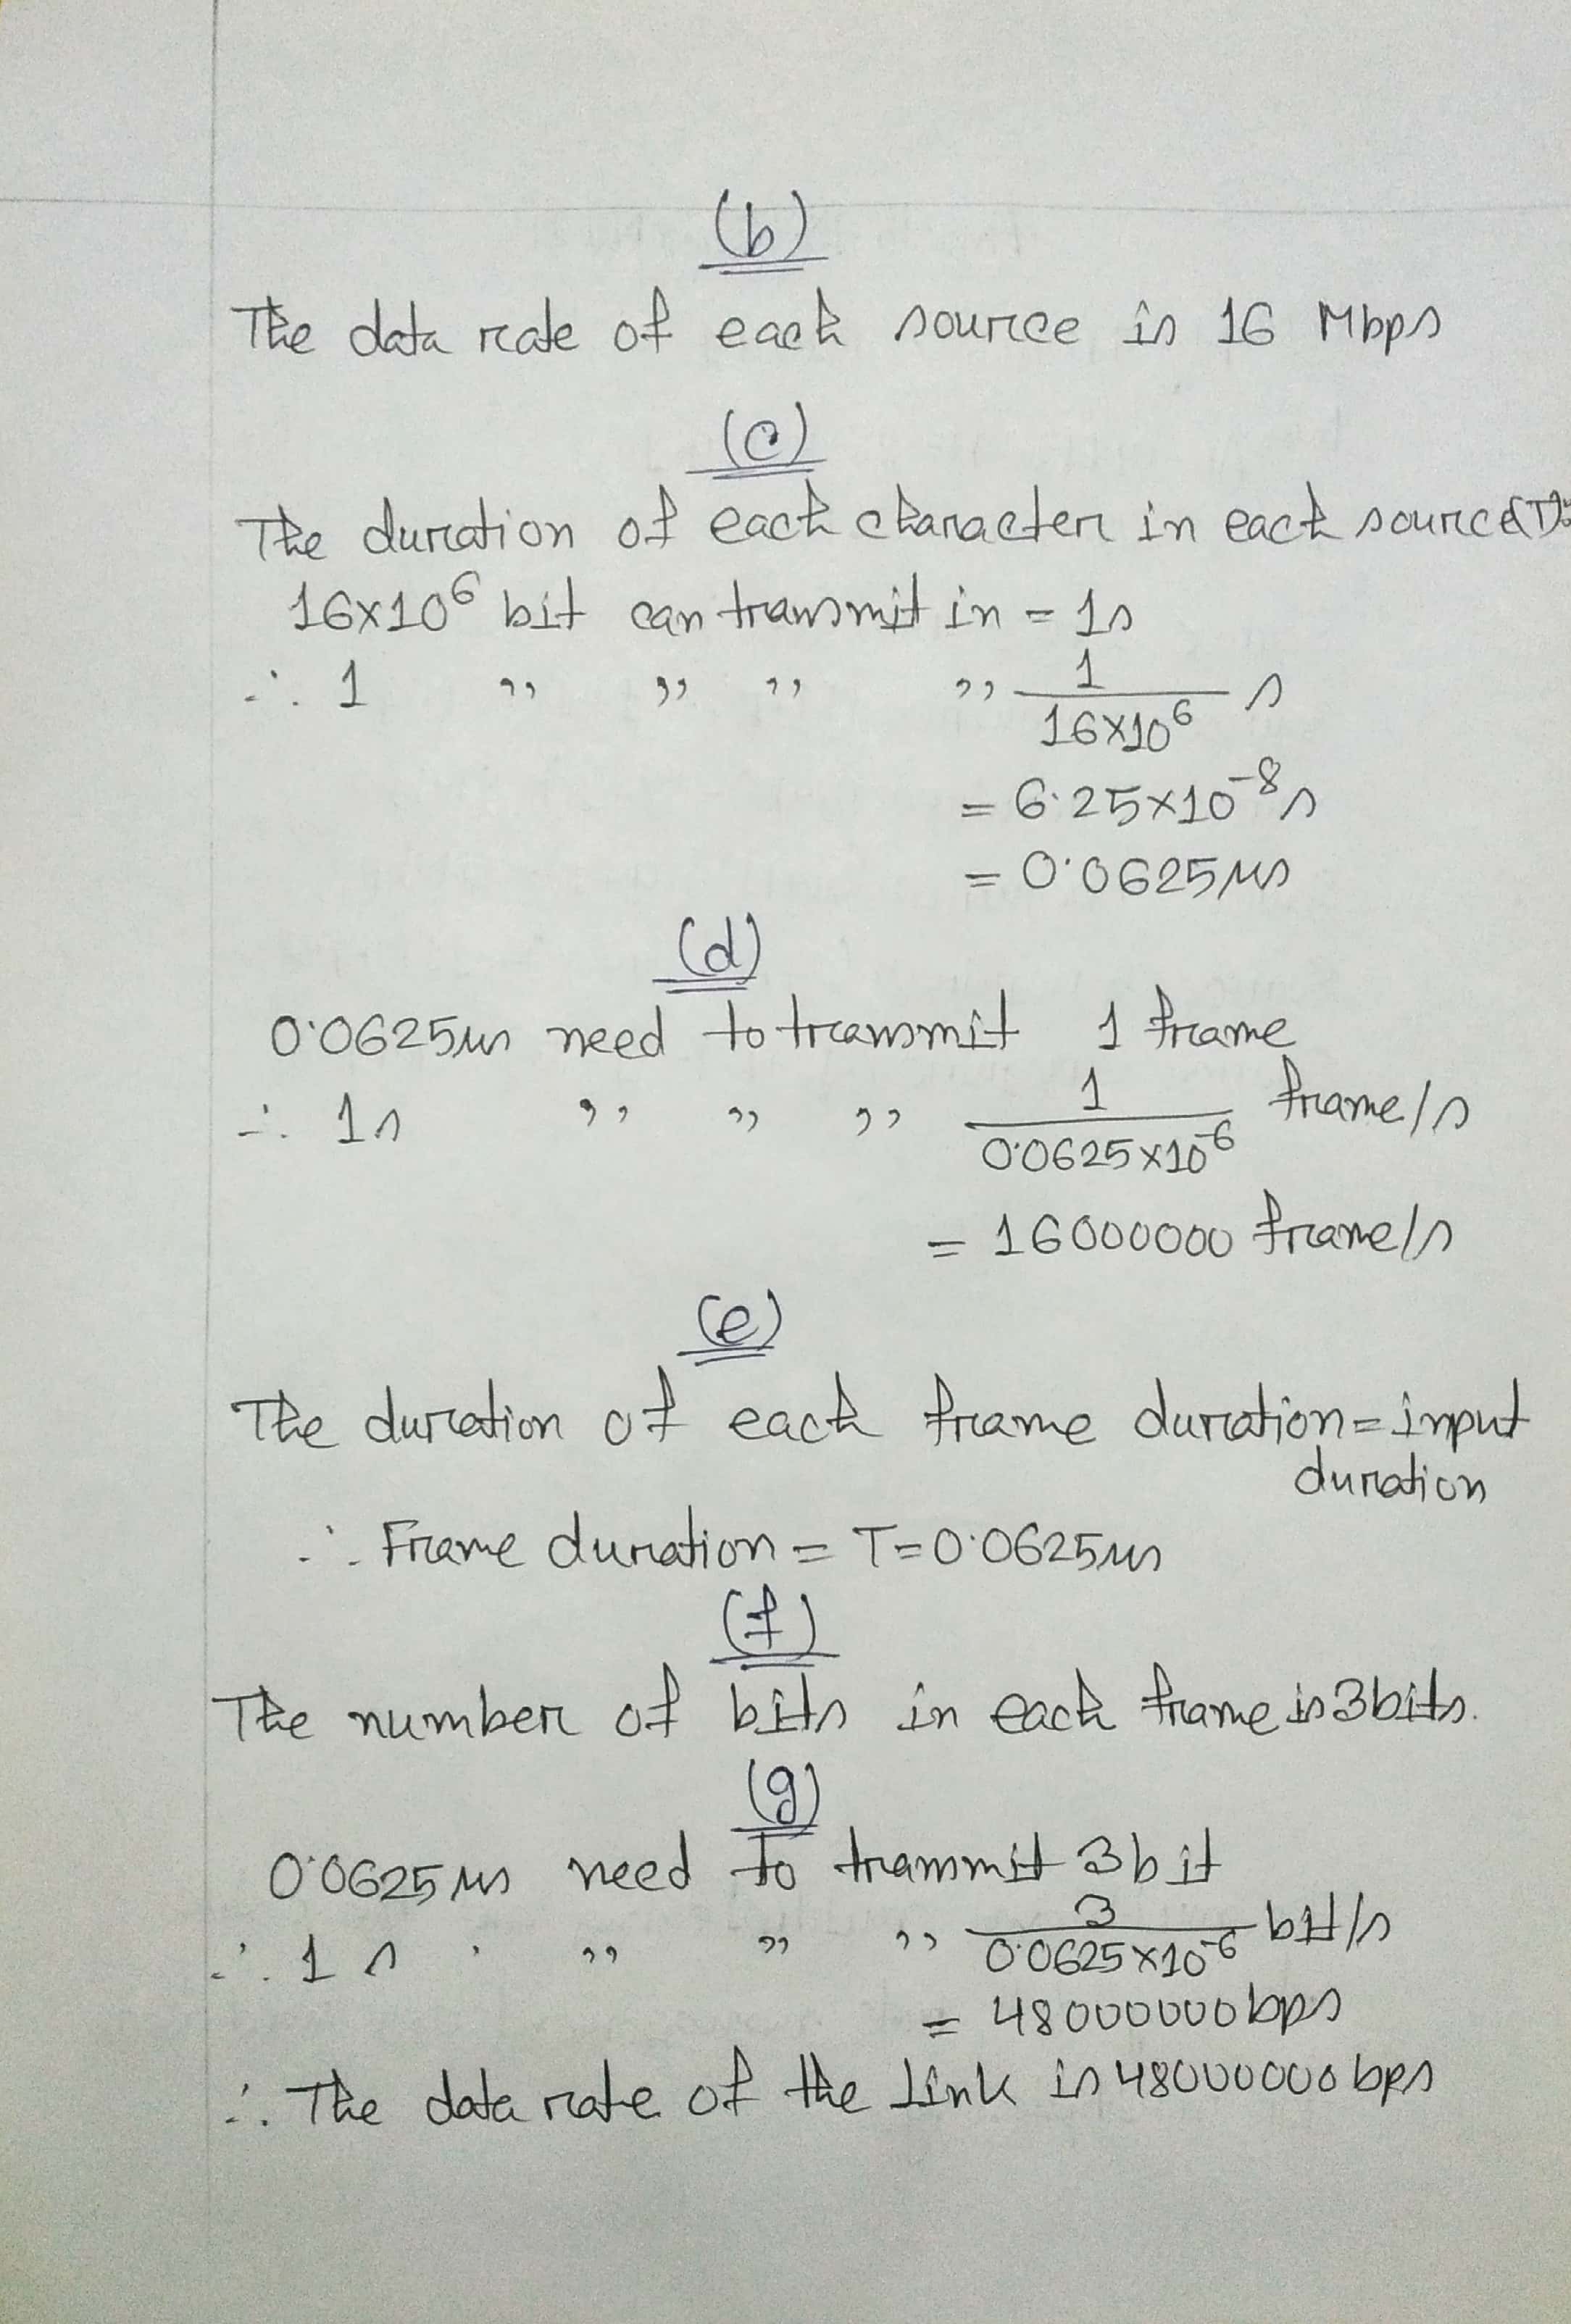 (b)
The data rate of each source is 16 Mbps
(c)
The duration of each character in each source(T):
16×10⁶ bit can transmit in = 1s
∴ 1 ,, ,, ,, ,, 1/16×10⁶ s
= 6.25×10⁻⁸ s
= 0.0625μs
(d)
0.0625μs need to transmit 1 frame
∴ 1s ,, ,, ,, 1/0.0625×10⁻⁶ frame/s
= 16000000 frame/s
(e)
The duration of each frame duration = input
duration
∴ Frame duration = T = 0.0625μs
(f)
The number of bits in each frame is 3 bits.
(g)
0.0625μs need to trammit 3 bit
∴ 1 s ,, ,, ,, 3/0.0625×10⁻⁶ bit/s
= 48000000 bps
∴ The data rate of the link is 48000000 bps